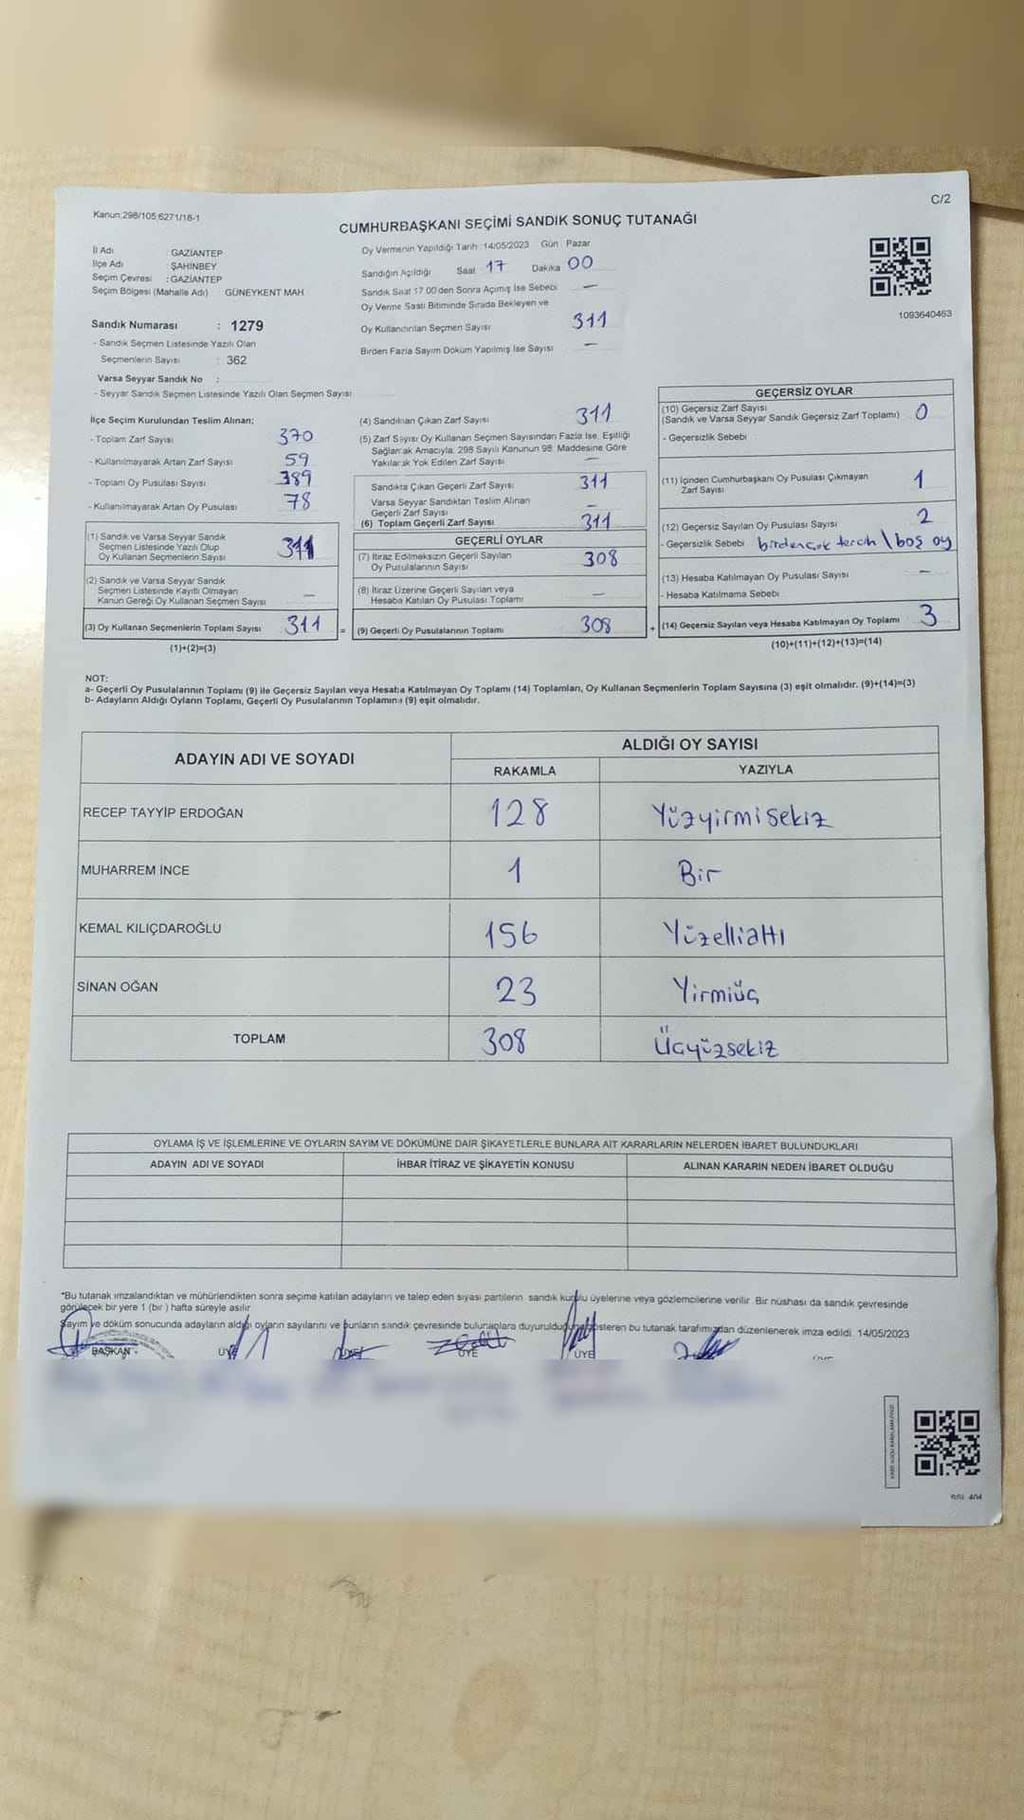 Kanun:298/105 6271/18-1
C/2
CUMHURBAŞKANI SEÇİMİ SANDIK SONUÇ TUTANAĞI
İl Adı : GAZİANTEP
İlçe Adı : ŞAHİNBEY
Seçim Çevresi : GAZİANTEP
Seçim Bölgesi (Mahalle Adı) GÜNEYKENT MAH
Sandık Numarası : 1279
- Sandık Seçmen Listesinde Yazılı Olan
Seçmenlerin Sayısı : 362
Varsa Seyyar Sandık No :
- Seyyar Sandık Seçmen Listesinde Yazılı Olan Seçmen Sayısı
Oy Vermenin Yapıldığı Tarih 14/05/2023 Gün Pazar
Sandığın Açıldığı Saat 17 Dakika 00
Sandık Saat 17.00'den Sonra Açımış İse Sebebi —
Oy Verme Saati Bitiminde Sırada Bekleyen ve
Oy Kullandırılan Seçmen Sayısı 311
Birden Fazla Sayım Döküm Yapılmış İse Sayısı —
1093640463
İlçe Seçim Kurulundan Teslim Alınan;
- Toplam Zarf Sayısı 370
- Kullanılmayarak Artan Zarf Sayısı 59
- Toplam Oy Pusulası Sayısı 389
- Kullanılmayarak Artan Oy Pusulası 78
(1) Sandık ve Varsa Seyyar Sandık
Seçmen Listesinde Yazılı Olup
Oy Kullanan Seçmenlerin Sayısı 311
(2) Sandık ve Varsa Seyyar Sandık
Seçmen Listesinde Kayıtlı Olmayan
Kanun Gereği Oy Kullanan Seçmen Sayısı —
(3) Oy Kullanan Seçmenlerin Toplam Sayısı 311 =
(1)+(2)=(3)
(4) Sandıktan Çıkan Zarf Sayısı 311
(5) Zarf Sayısı Oy Kullanan Seçmen Sayısından Fazla İse, Eşitliği
Sağlamak Amacıyla, 298 Sayılı Kanunun 98. Maddesine Göre
Yakılarak Yok Edilen Zarf Sayısı —
Sandıkta Çıkan Geçerli Zarf Sayısı 311
Varsa Seyyar Sandıktan Teslim Alınan
Geçerli Zarf Sayısı —
(6) Toplam Geçerli Zarf Sayısı 311
GEÇERLİ OYLAR
(7) İtiraz Edilmeksizin Geçerli Sayılan
Oy Pusulalarının Sayısı 308
(8) İtiraz Üzerine Geçerli Sayılan veya
Hesaba Katılan Oy Pusulası Toplamı —
(9) Geçerli Oy Pusulalarının Toplamı 308 +
GEÇERSİZ OYLAR
(10) Geçersiz Zarf Sayısı
(Sandık ve Varsa Seyyar Sandık Geçersiz Zarf Toplamı) 0
- Geçersizlik Sebebi
(11) İçinden Cumhurbaşkanı Oy Pusulası Çıkmayan
Zarf Sayısı 1
(12) Geçersiz Sayılan Oy Pusulası Sayısı 2
- Geçersizlik Sebebi birdençok tercih \ boş oy
(13) Hesaba Katılmayan Oy Pusulası Sayısı —
- Hesaba Katılmama Sebebi
(14) Geçersiz Sayılan veya Hesaba Katılmayan Oy Toplamı 3
(10)+(11)+(12)+(13)=(14)
NOT:
a- Geçerli Oy Pusulalarının Toplamı (9) ile Geçersiz Sayılan veya Hesaba Katılmayan Oy Toplamı (14) Toplamları, Oy Kullanan Seçmenlerin Toplam Sayısına (3) eşit olmalıdır. (9)+(14)=(3)
b- Adayların Aldığı Oyların Toplamı, Geçerli Oy Pusulalarının Toplamına (9) eşit olmalıdır.
ADAYIN ADI VE SOYADI ALDIĞI OY SAYISI
RAKAMLA YAZIYLA
RECEP TAYYİP ERDOĞAN 128 Yüzyirmisekiz
MUHARREM İNCE 1 Bir
KEMAL KILIÇDAROĞLU 156 Yüzellialtı
SİNAN OĞAN 23 Yirmiüç
TOPLAM 308 Üçyüzsekiz
OYLAMA İŞ VE İŞLEMLERİNE VE OYLARIN SAYIM VE DÖKÜMÜNE DAİR ŞİKAYETLERLE BUNLARA AİT KARARLARIN NELERDEN İBARET BULUNDUKLARI
ADAYIN ADI VE SOYADI İHBAR İTİRAZ VE ŞİKAYETİN KONUSU ALINAN KARARIN NEDEN İBARET OLDUĞU
*Bu tutanak imzalandıktan ve mühürlendikten sonra seçime katılan adayların ve talep eden siyasi partilerin sandık kurulu üyelerine veya gözlemcilerine verilir. Bir nüshası da sandık çevresinde
görülecek bir yere 1 (bir) hafta süreyle asılır
Sayım ve döküm sonucunda adayların aldığı oyların sayılarını ve bunların sandık çevresinde bulunanlara duyurulduğunu gösteren bu tutanak tarafımızdan düzenlenerek imza edildi. 14/05/2023
BAŞKAN ÜYE ÜYE ÜYE